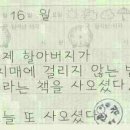 16일 월
제 할아버지가
치매에 걸리지 않는 법
라는 책을 사오셨다
늘 또 사오셨다